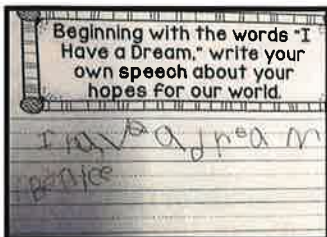 Beginning with the words "I
Have a Dream," write your
own speech about your
hopes for our world.
I have a dream